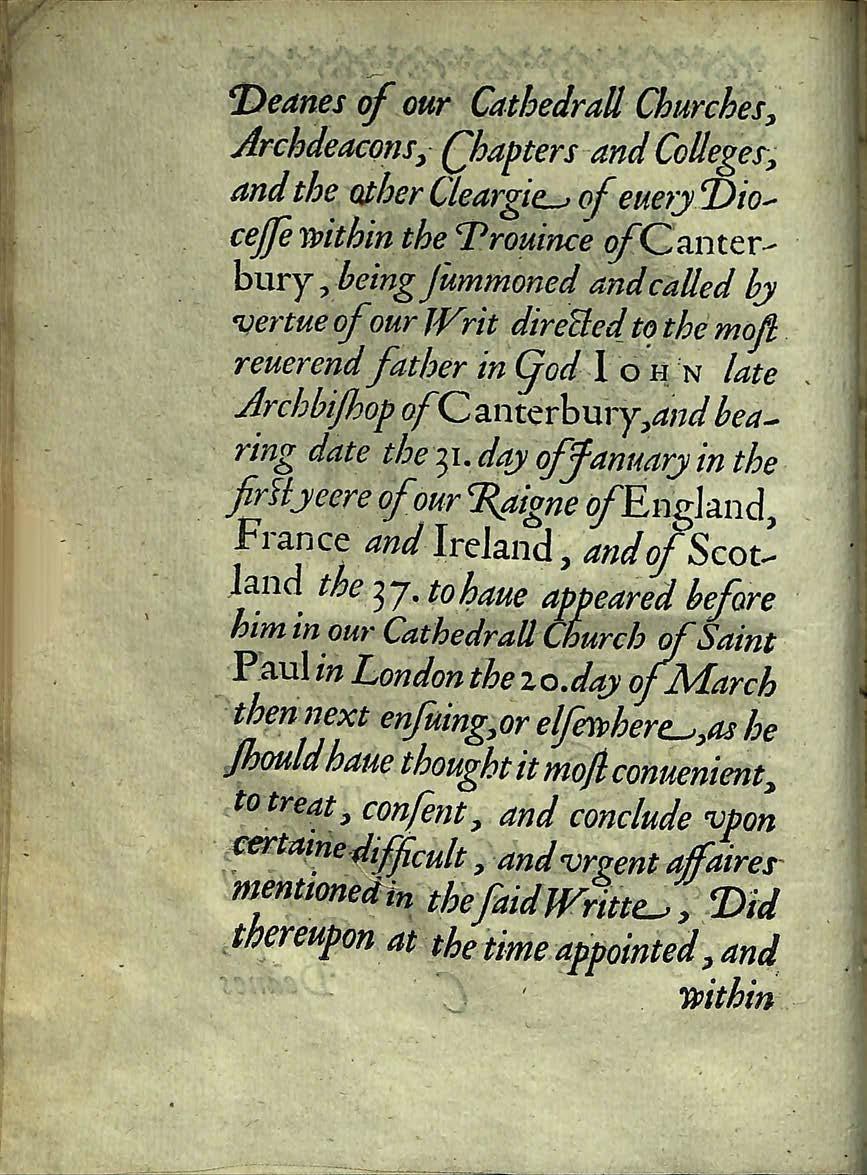 Deanes of our Cathedrall Churches,
Archdeacons, Chapters and Colleges,
and the other Cleargie of euery Dio-
ceſſe within the Prouince of Canter-
bury, being ſummoned and called by
vertue of our Writ directed to the moſt
reuerend father in God IOHN late
Archbiſhop of Canterbury, and bea-
ring date the 31. day of January in the
firſt yeere of our Raigne of England,
France and Ireland, and of Scot-
land the 37. to haue appeared before
him in our Cathedrall Church of Saint
Paul in London the 20. day of March
then next enſuing, or elſewhere, as he
ſhould haue thought it moſt conuenient,
to treat, conſent, and conclude vpon
certaine difficult, and vrgent affaires
mentioned in the ſaid Writte, Did
thereupon at the time appointed, and
within